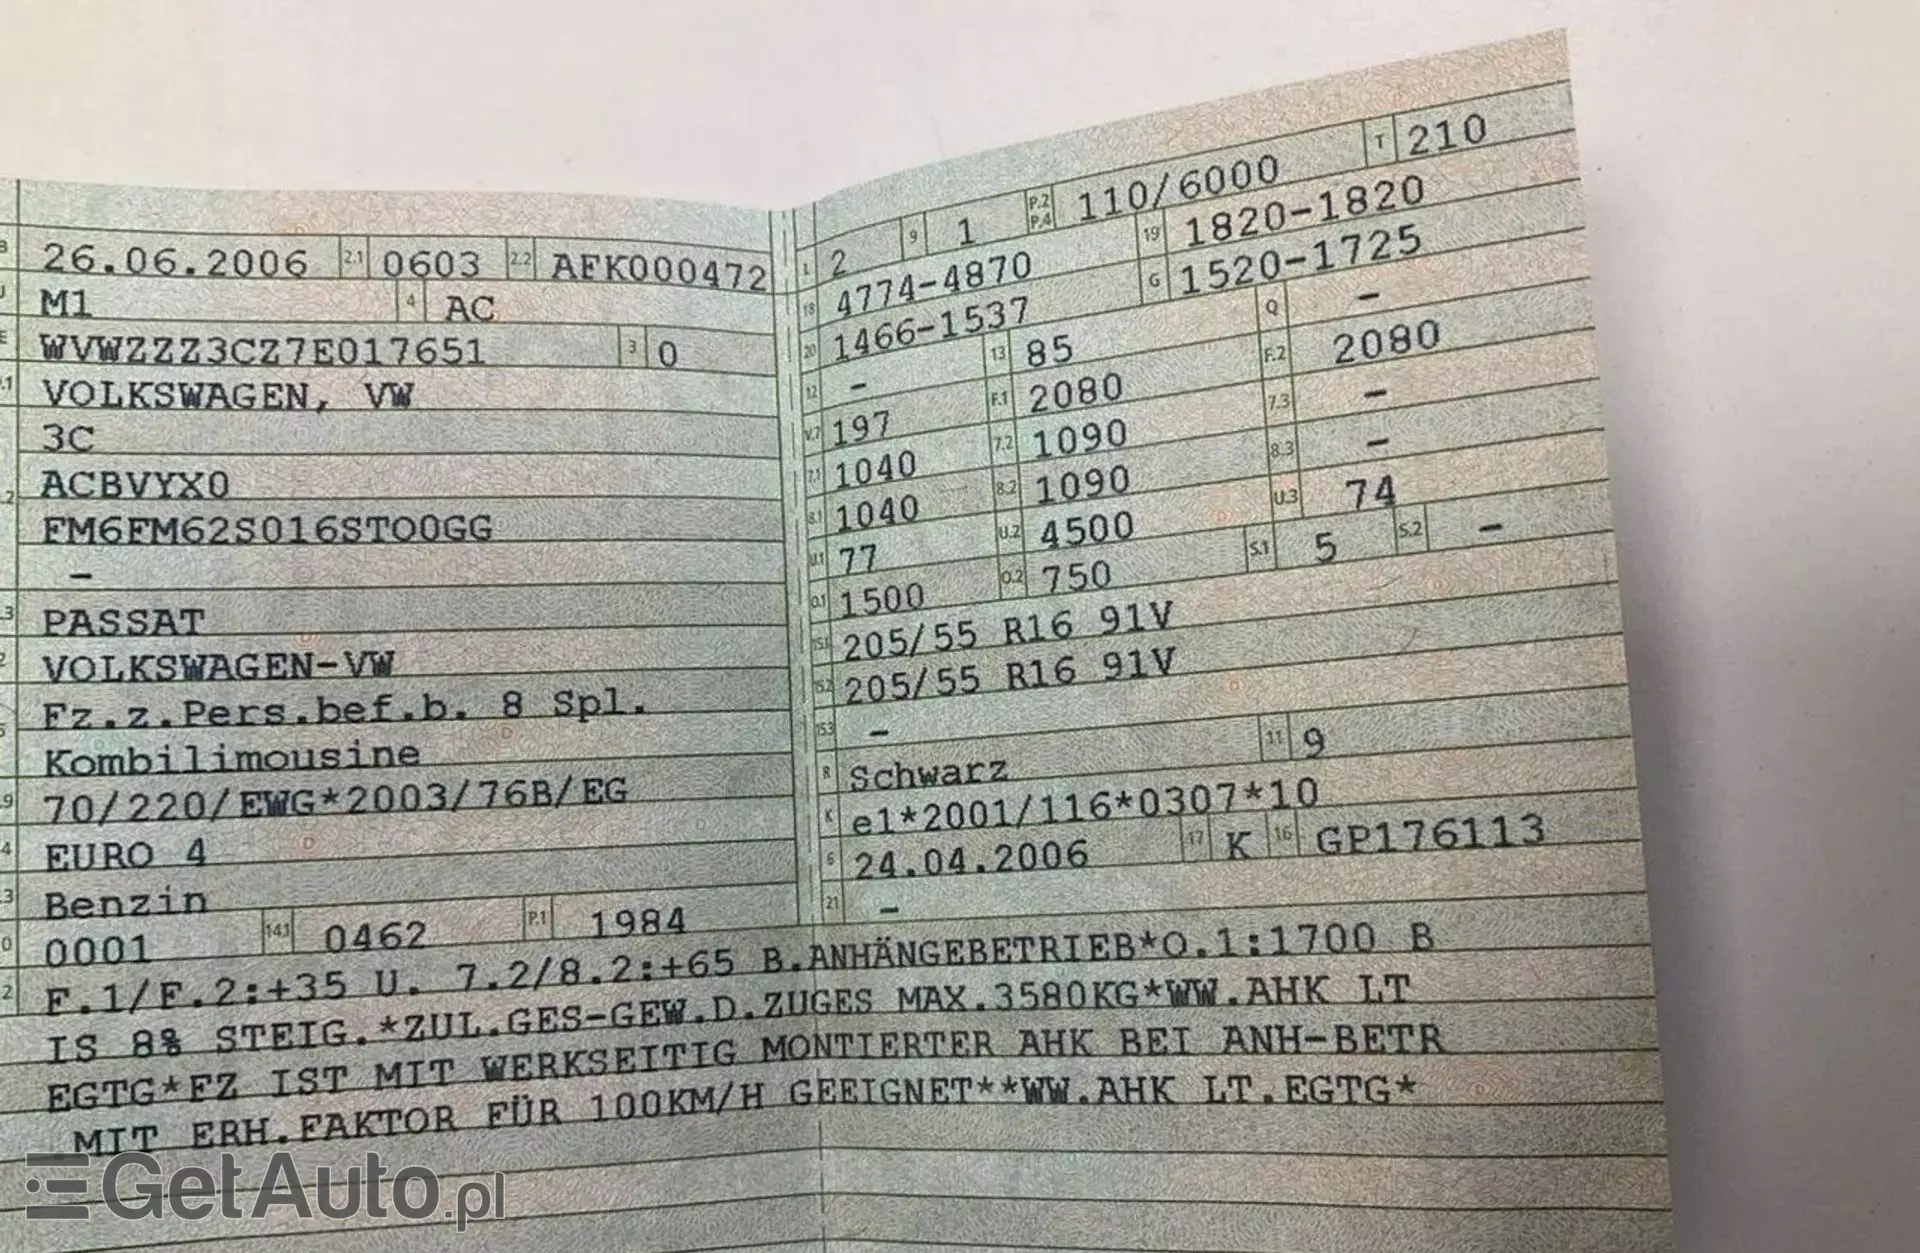 B 26.06.2006 2.1 0603 2.2 AFK000472
J M1 4 AC
E WVWZZZ3CZ7E017651 3 0
.1 VOLKSWAGEN, VW
3C
ACBVYX0
.2 FM6FM62S016STO0GG
–
.3 PASSAT
2 VOLKSWAGEN-VW
5 Fz.z.Pers.bef.b. 8 Spl.
Kombilimousine
.9 70/220/EWG*2003/76B/EG
4 EURO 4
.3 Benzin
0 0001 14.1 0462 P.1 1984
L 2 9 1 P.2 P.4 110/6000 T 210
18 4774-4870 19 1820-1820
20 1466-1537 G 1520-1725
12 – 13 85 Q –
V.7 197 F.1 2080 F.2 2080
7.1 1040 7.2 1090 7.3 –
8.1 1040 8.2 1090 8.3 –
U.1 77 U.2 4500 U.3 74
O.1 1500 O.2 750 S.1 5 S.2 –
15.1 205/55 R16 91V
15.2 205/55 R16 91V
15.3 –
R Schwarz 11 9
K e1*2001/116*0307*10
6 24.04.2006 17 K 16 GP176113
21 –
2 F.1/F.2:+35 U. 7.2/8.2:+65 B.ANHÄNGEBETRIEB*O.1:1700 B
IS 8% STEIG.*ZUL.GES-GEW.D.ZUGES MAX.3580KG*WW.AHK LT
EGTG*FZ IST MIT WERKSEITIG MONTIERTER AHK BEI ANH-BETR
MIT ERH.FAKTOR FÜR 100KM/H GEEIGNET**WW.AHK LT.EGTG*
GetAuto.pl